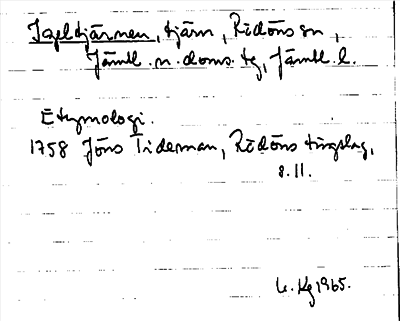 Igeltjärnen, tjärn, Rödöns sn,
Jämtl. n. doms. tg, Jämtl. l.
Etymologi.
1758 Jöns Tideman, Rödöns tingslag,
s. 11.
1965.